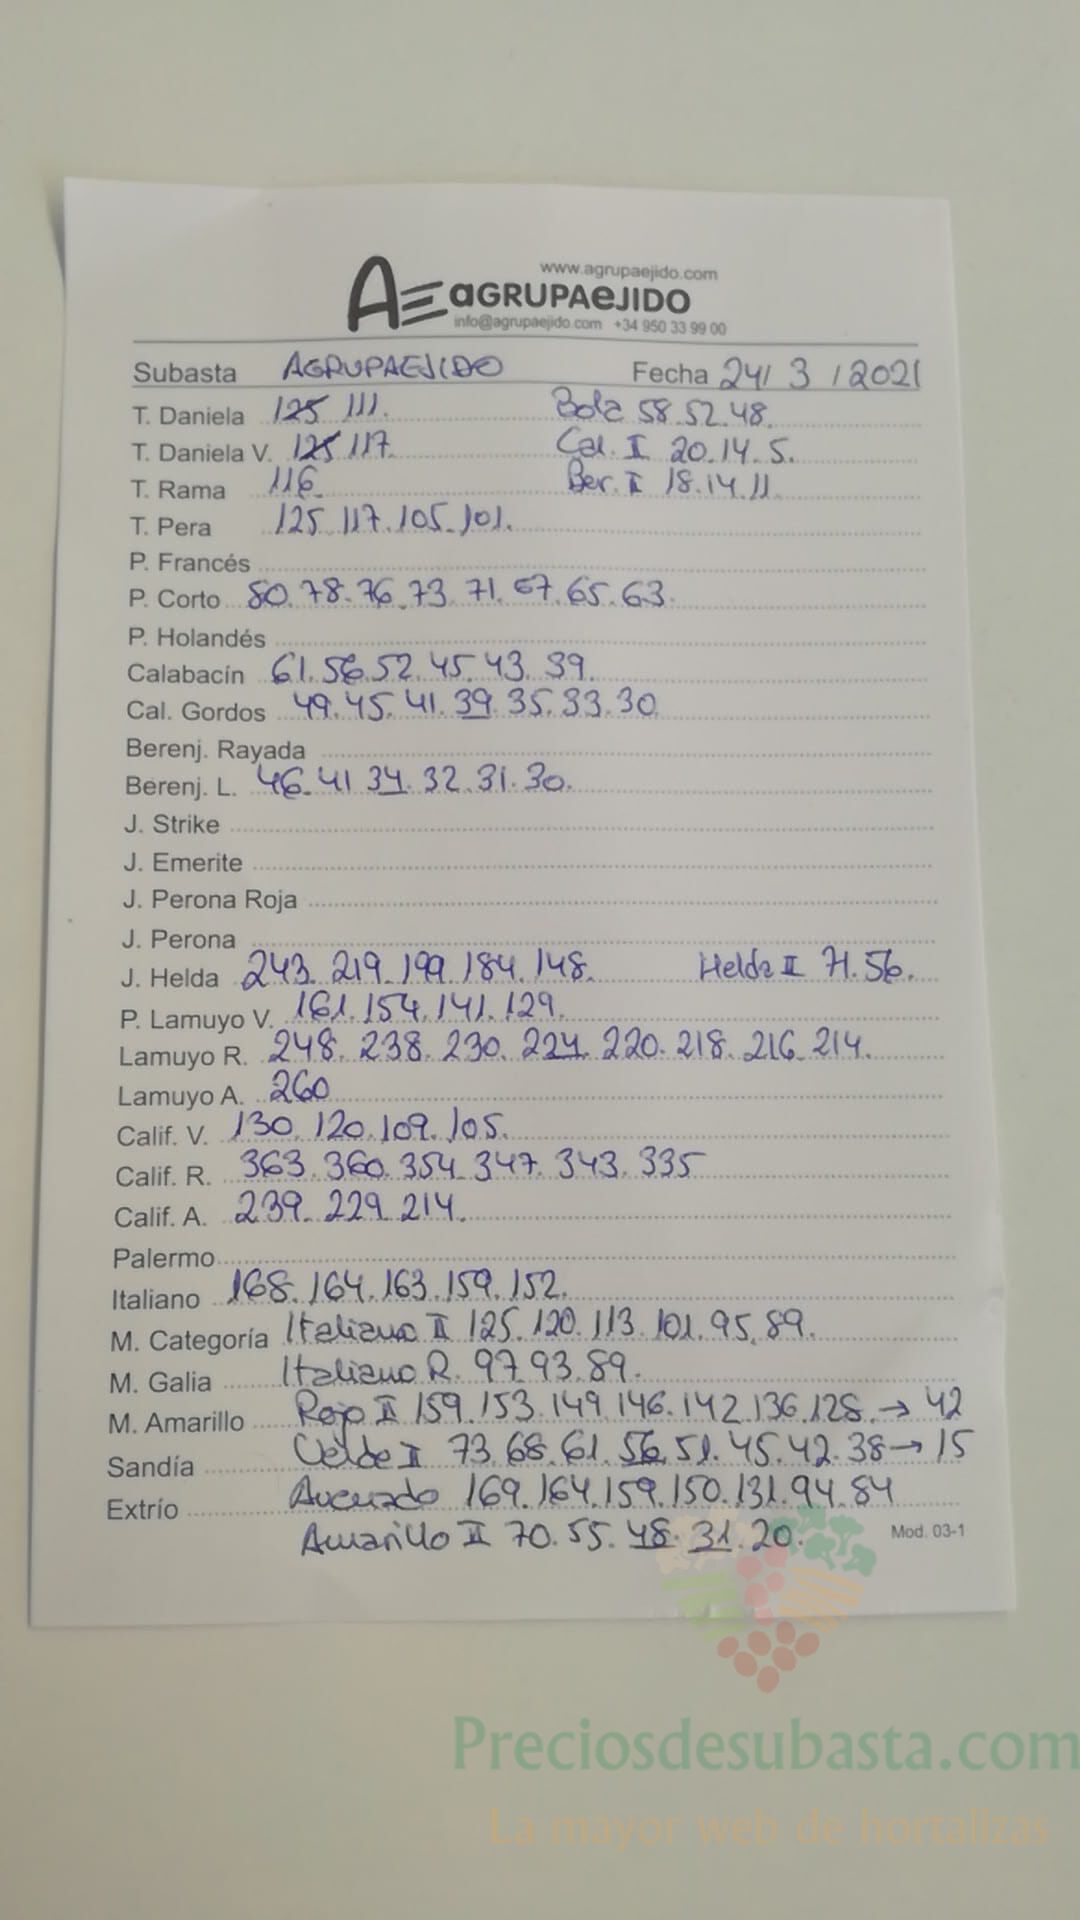 www.agrupaejido.com
AE aGRUPAeJIDO
info@agrupaejido.com +34 950 33 99 00
Subasta AGRUPAEJIDO Fecha 24/ 3 /2021
T. Daniela 125 111. Bola 58.52.48.
T. Daniela V. 125 117. Cal. II 20.14.5.
T. Rama 116. Ber. II 18.14.11.
T. Pera 125.117.105.101.
P. Francés
P. Corto 80.78.76.73.71.67.65.63.
P. Holandés
Calabacín 61.56.52.45.43.39.
Cal. Gordos 49.45.41.39.35.33.30
Berenj. Rayada
Berenj. L. 46.41.34.32.31.30.
J. Strike
J. Emerite
J. Perona Roja
J. Perona
J. Helda 243.219.199.184.148. Helda II 71.56.
P. Lamuyo V. 161.154.141.129.
Lamuyo R. 248.238.230.224.220.218.216.214.
Lamuyo A. 260
Calif. V. 130.120.109.105.
Calif. R. 363.360.354.347.343.335
Calif. A. 239.229.214.
Palermo
Italiano 168.164.163.159.152.
M. Categoría Italiano II 125.120.113.101.95.89.
M. Galia Italiano R. 97.93.89.
M. Amarillo Rojo II 159.153.149.146.142.136.128.→42
Sandía Verde II 73.68.61.56.51.45.42.38→15
Extrío Avenado 169.164.159.150.131.94.84
Amarillo II 70.55.48.31.20. Mod. 03-1
Preciosdesubasta.com
La mayor web de hortalizas